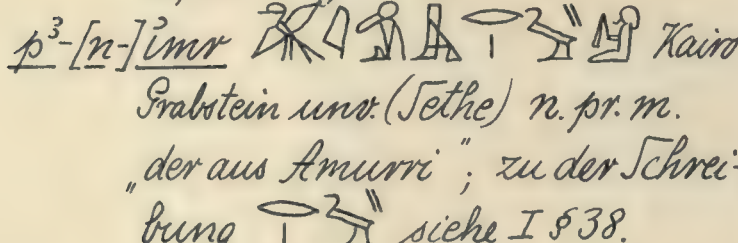 p³-[n-]imr Kairo
Grabstein unv. (Sethe) n. pr. m.
„der aus Amurri“; zu der Schrei-
bung siehe I § 38.